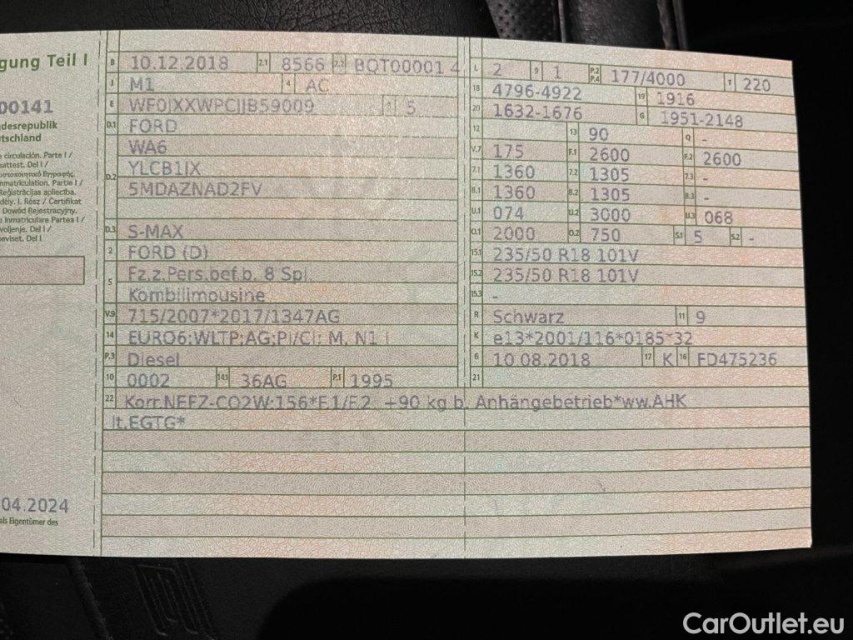 gung Teil I
00141
desrepublik
tschland
circulación. Parte I /
B 10.12.2018 2.1 8566 2.2 BQT00001 4
J M1 4 AC
E WF0JXXWPCJJB59009 3 5
D.1 FORD
D.2 WA6
YLCB1JX
5MDAZNAD2FV
D.3 S-MAX
2 FORD (D)
5 Fz.z.Pers.bef.b. 8 Spl.
Kombilimousine
V.9 715/2007*2017/1347AG
14 EURO6;WLTP;AG;PI/CI; M, N1 I
P.3 Diesel
10 0002 14.1 36AG P.1 1995
22 Korr.NEFZ-CO2W:156*F.1/F.2: +90 kg b. Anhängebetrieb*ww.AHK
lt.EGTG*
L 2 9 1 P.2 P.4 177/4000 T 220
18 4796-4922 19 1916
20 1632-1676 G 1951-2148
12 13 90 Q -
V.7 175 F.1 2600 F.2 2600
7.1 1360 7.2 1305 7.3 -
8.1 1360 8.2 1305 8.3 -
U.1 074 U.2 3000 U.3 068
O.1 2000 O.2 750 S.1 5 S.2 -
15.1 235/50 R18 101V
15.2 235/50 R18 101V
15.3 -
R Schwarz 11 9
K e13*2001/116*0185*32
6 10.08.2018 17 K 16 FD475236
21
04.2024
als Eigentümer des
CarOutlet.eu